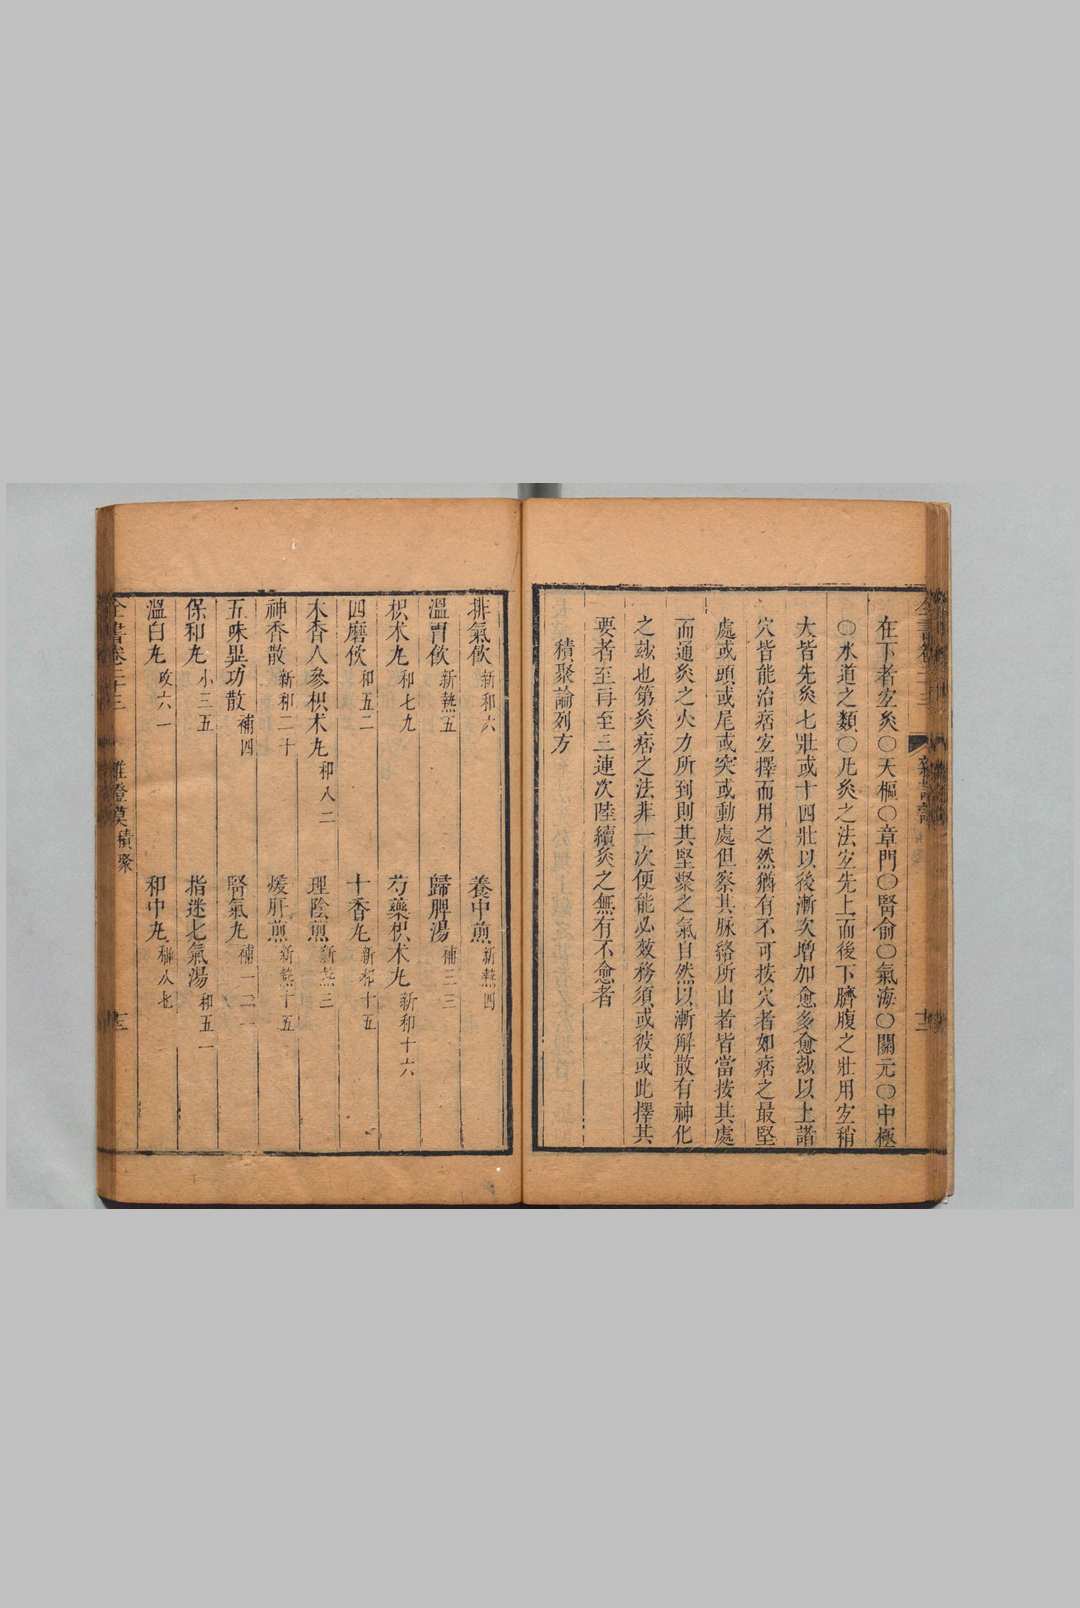 在下者宜灸○天樞○章門○腎俞○氣海○關元○中極
○水道之類○凡灸之法宜先上而後下臍腹之壯用宜稍
大皆先灸七壯或十四壯以後漸次增加愈多愈玅以上諸
穴皆能治痞宜擇而用之然猶有不可按穴者如痞之最堅
處或頭或尾或突或動處但察其脉絡所由者皆當按其處
而通灸之火力所到則其堅聚之氣自然以漸解散有神化
之玅也第灸痞之法非一次便能必效務須或彼或此擇其
要者至再至三連次陸續灸之無有不愈者
積聚論列方
排氣飲 新和六 養中煎 新熱四
溫胃飲 新熱五 歸脾湯 補三二
枳朮丸 和七九 芍藥枳朮丸 新和十六
四磨飲 和五二 十香丸 新和十五
木香人參枳朮丸 和八二 理陰煎 新熱三
神香散 新和二十 煖肝煎 新熱十五
五味異功散 補四 腎氣丸 補一二一
保和丸 小三五 指迷七氣湯 和五一
溫白丸 攻六一 和中丸 補八七
全書卷二十三 雜證謨 積聚 十三